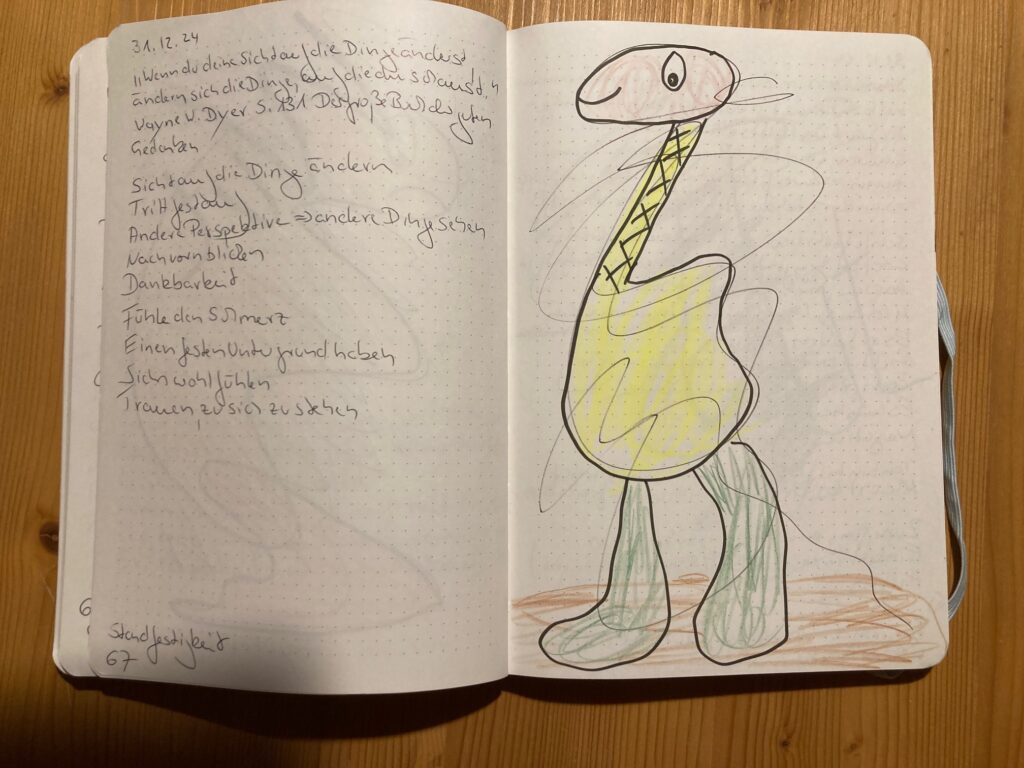 31.12.24
„Wenn du deine Sicht auf die Dinge änderst
ändern sich die Dinge, auf die du schaust."
Wayne W. Dyer S. 131 Das große Buch der guten
Gedanken
Sicht auf die Dinge ändern
Tritt fest auf
Andere Perspektive => andere Dinge sehen
Nach vorn blicken
Dankbarkeit
Fühle den Schmerz
Einen festen Untergrund haben
Sich wohlfühlen
Trauen, zu sich zu stehen
Standfestigkeit
67
6